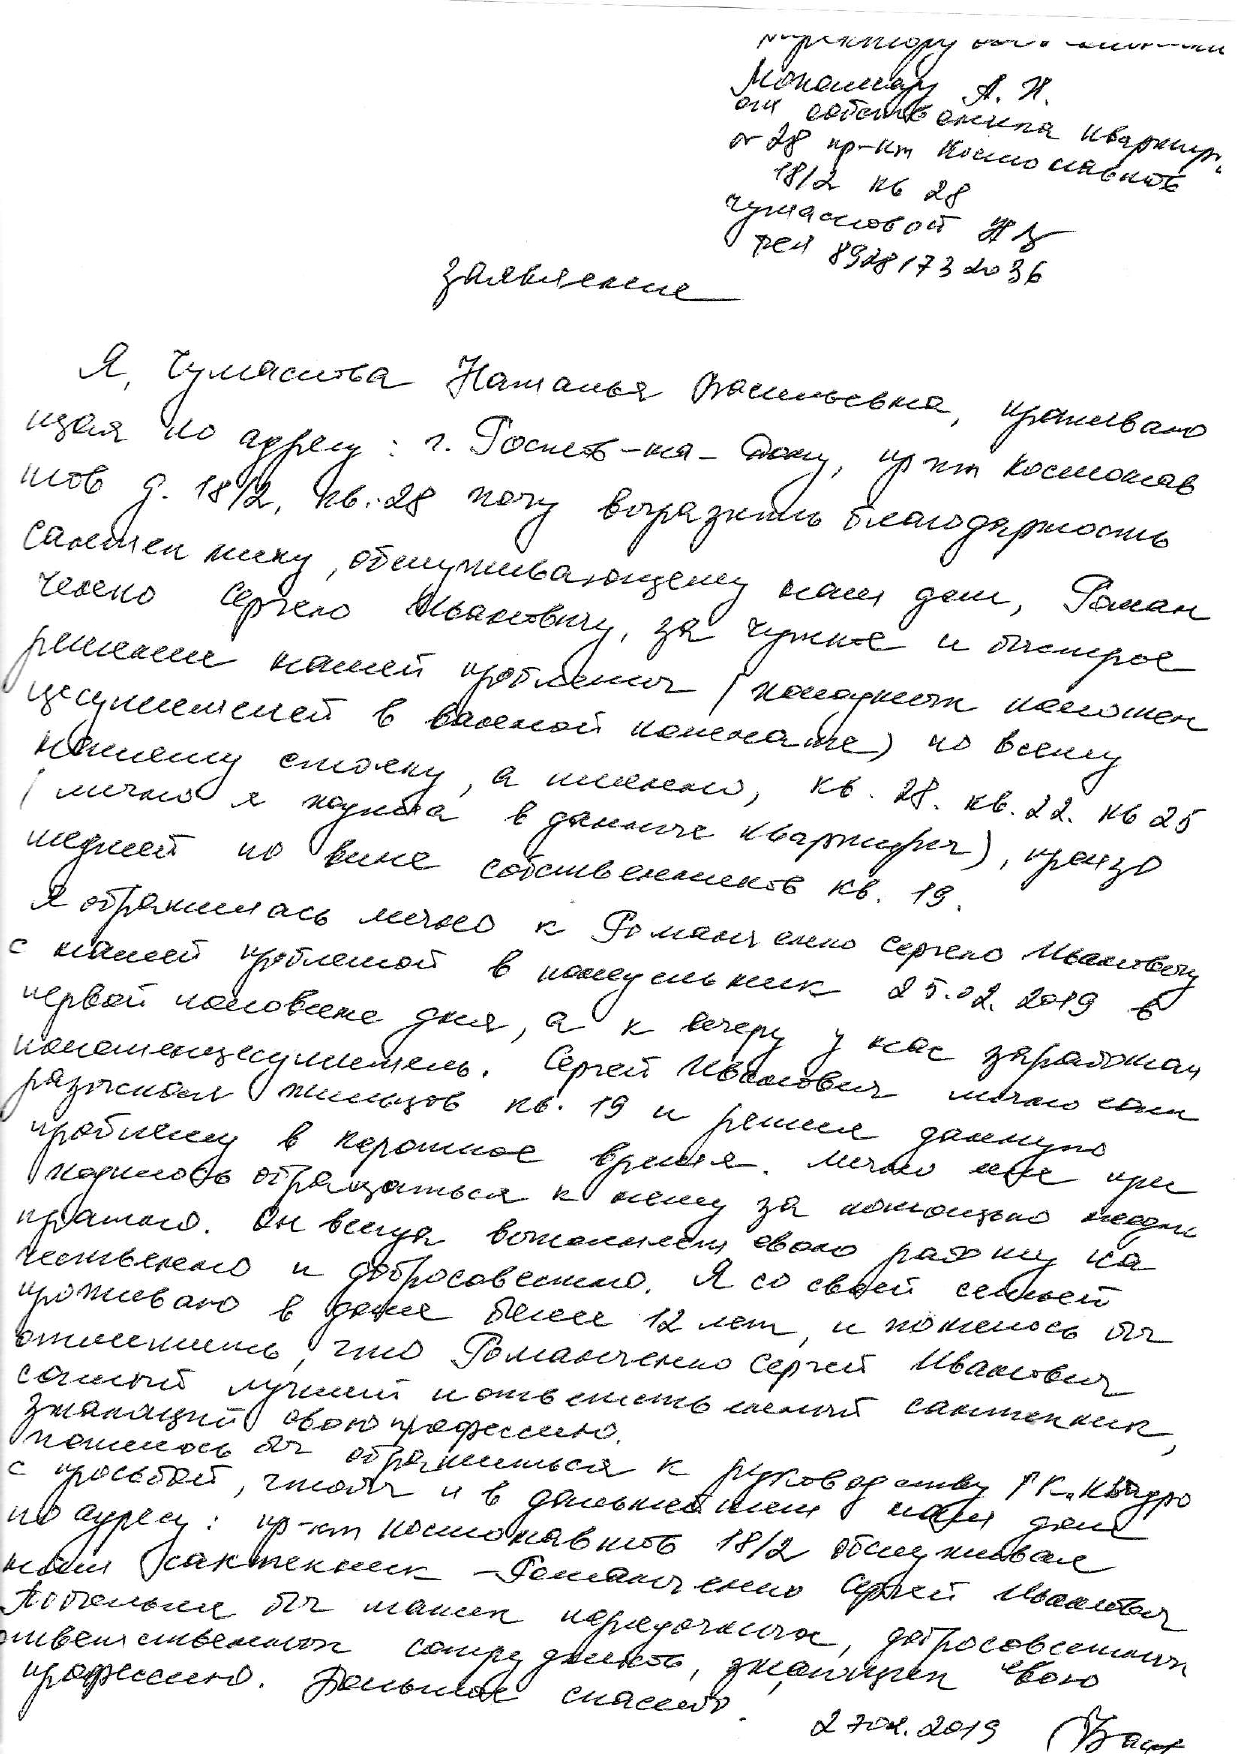 Директору
А. Н.
от собственника квартир.
№ 28 пр-кт Космонавтов
18/2 кв 28
Чумасовой НВ
тел 89281732036
заявление
Я, Чумасова Наталья Васильевна, прожива­ю
щая по адресу: г. Ростов-на-Дону, пр кт Космонав
тов д. 18/2, кв. 28 хочу выразить благодарность
сантехнику, обслуживающему наш дом, Роман
ченко Сергею Ивановичу, за чуткое и быстрое
решение нашей проблемы (холодных полотен
цесушителей в ванной комнате) по всему
нашему стояку, а именно, кв. 28. кв. 22. кв 25
(лично я ходила в данные квартиры), произо
шедшей по вине собственников кв. 19.
Я обратилась лично к Романченко Сергею Ивановичу
с нашей проблемой в понедельник 25.02.2019 в
первой половине дня, а к вечеру у нас заработал
полотенцесушитель. Сергей Иванович лично сам
разыскал жильцов кв. 19 и решил данную
проблему в короткое время. Лично мне при
ходилось обращаться к нему за помощью неодно
кратно. Он всегда выполняет свою работу ка
чественно и добросовестно. Я со своей семьей
проживаю в доме более 12 лет, и хотелось бы
отметить, что Романченко Сергей Иванович
самый лучший и ответственный сантехник,
знающий свою профессию.
Хотелось бы обратиться к руководству ГК "Квадро
с просьбой, чтобы и в дальнейшем наш дом
по адресу: пр-кт Космонавтов 18/2 обслуживал
наш сантехник - Романченко Сергей Иванович
Побольше бы таких порядочных, добросовестных
ответственных сотрудников, знающих свою
профессию. Большое спасибо.
27.02.2019